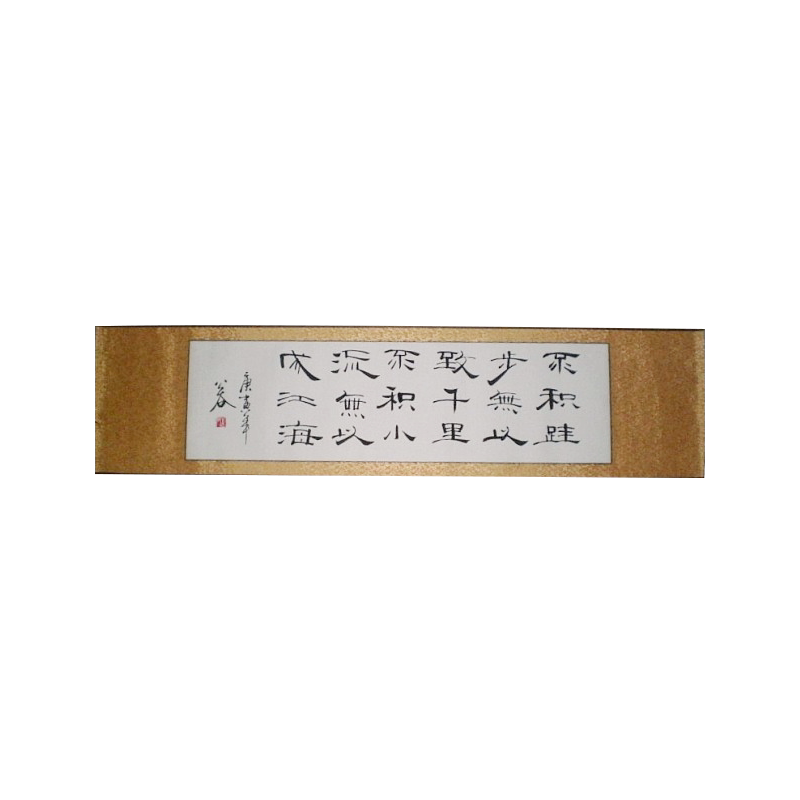 不积跬
步無以
致千里
不积小
流無以
成江海
庚寅年